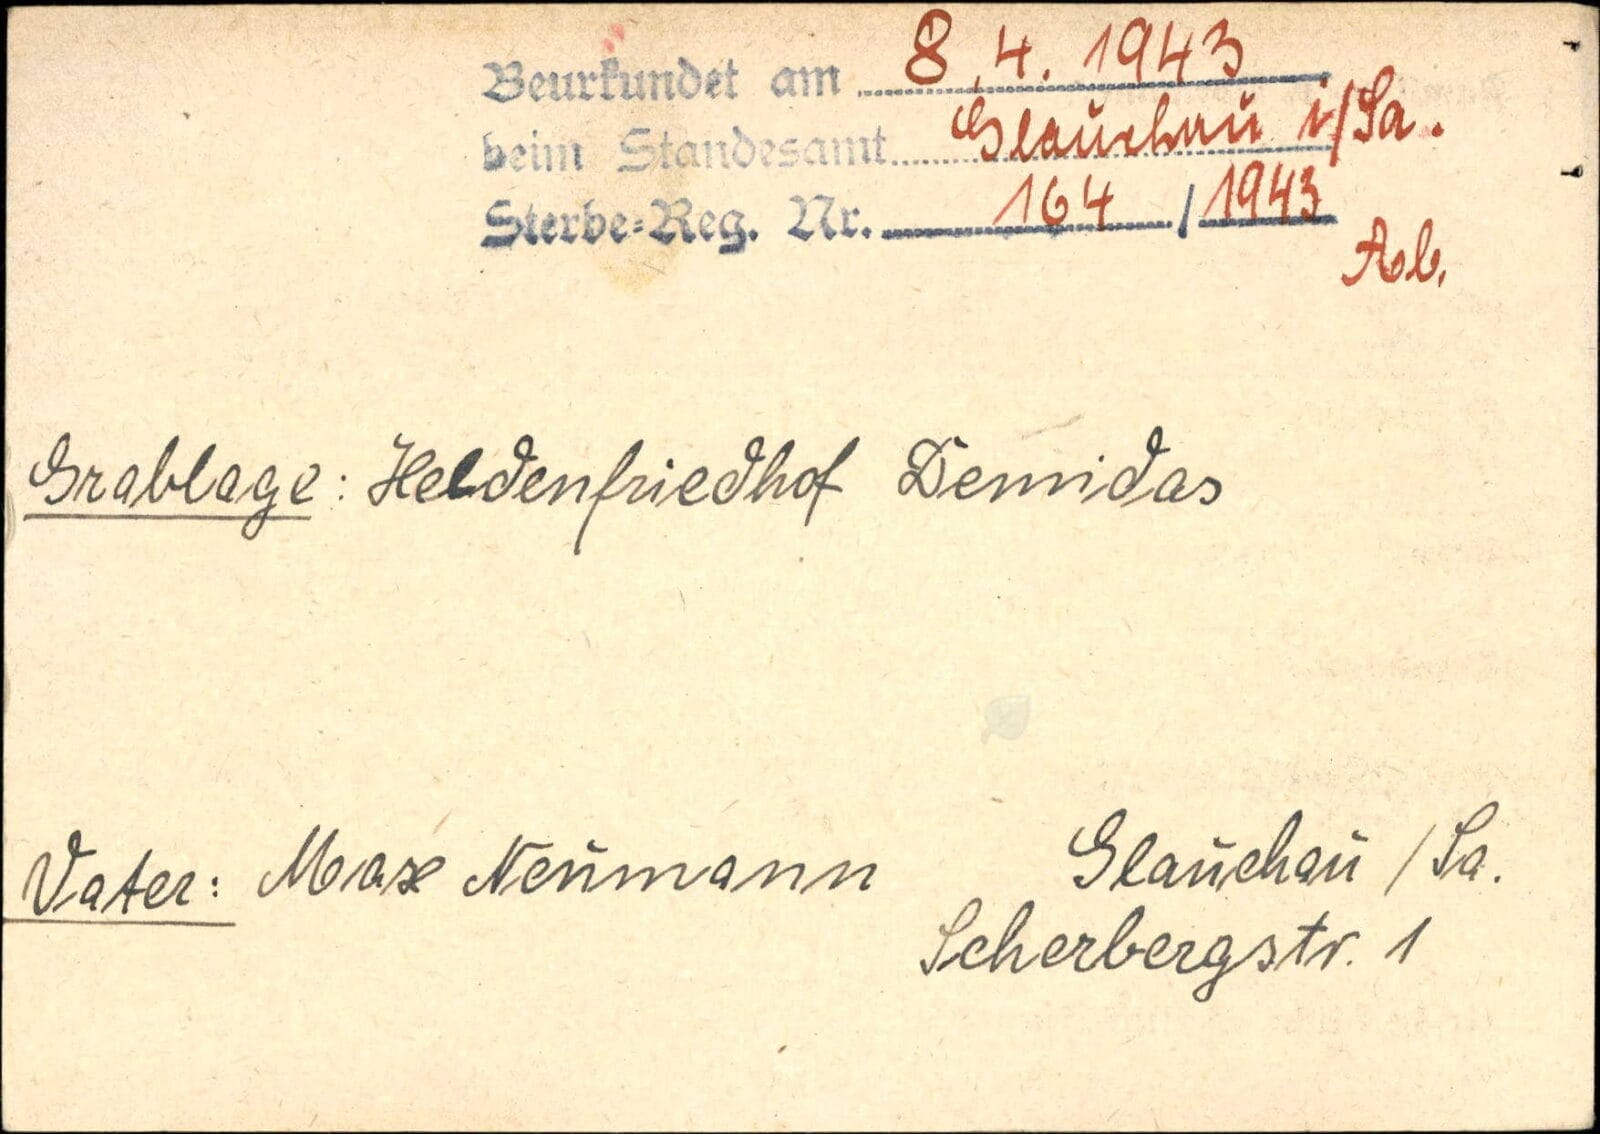 Beurkundet am 8.4.1943
beim Standesamt Glauchau i/Sa.
Sterbe=Reg. Nr. 164 / 1943
Ab.
Grablage: Heldenfriedhof Demidas
Vater: Max Neumann Glauchau / Sa.
Scherbergstr. 1